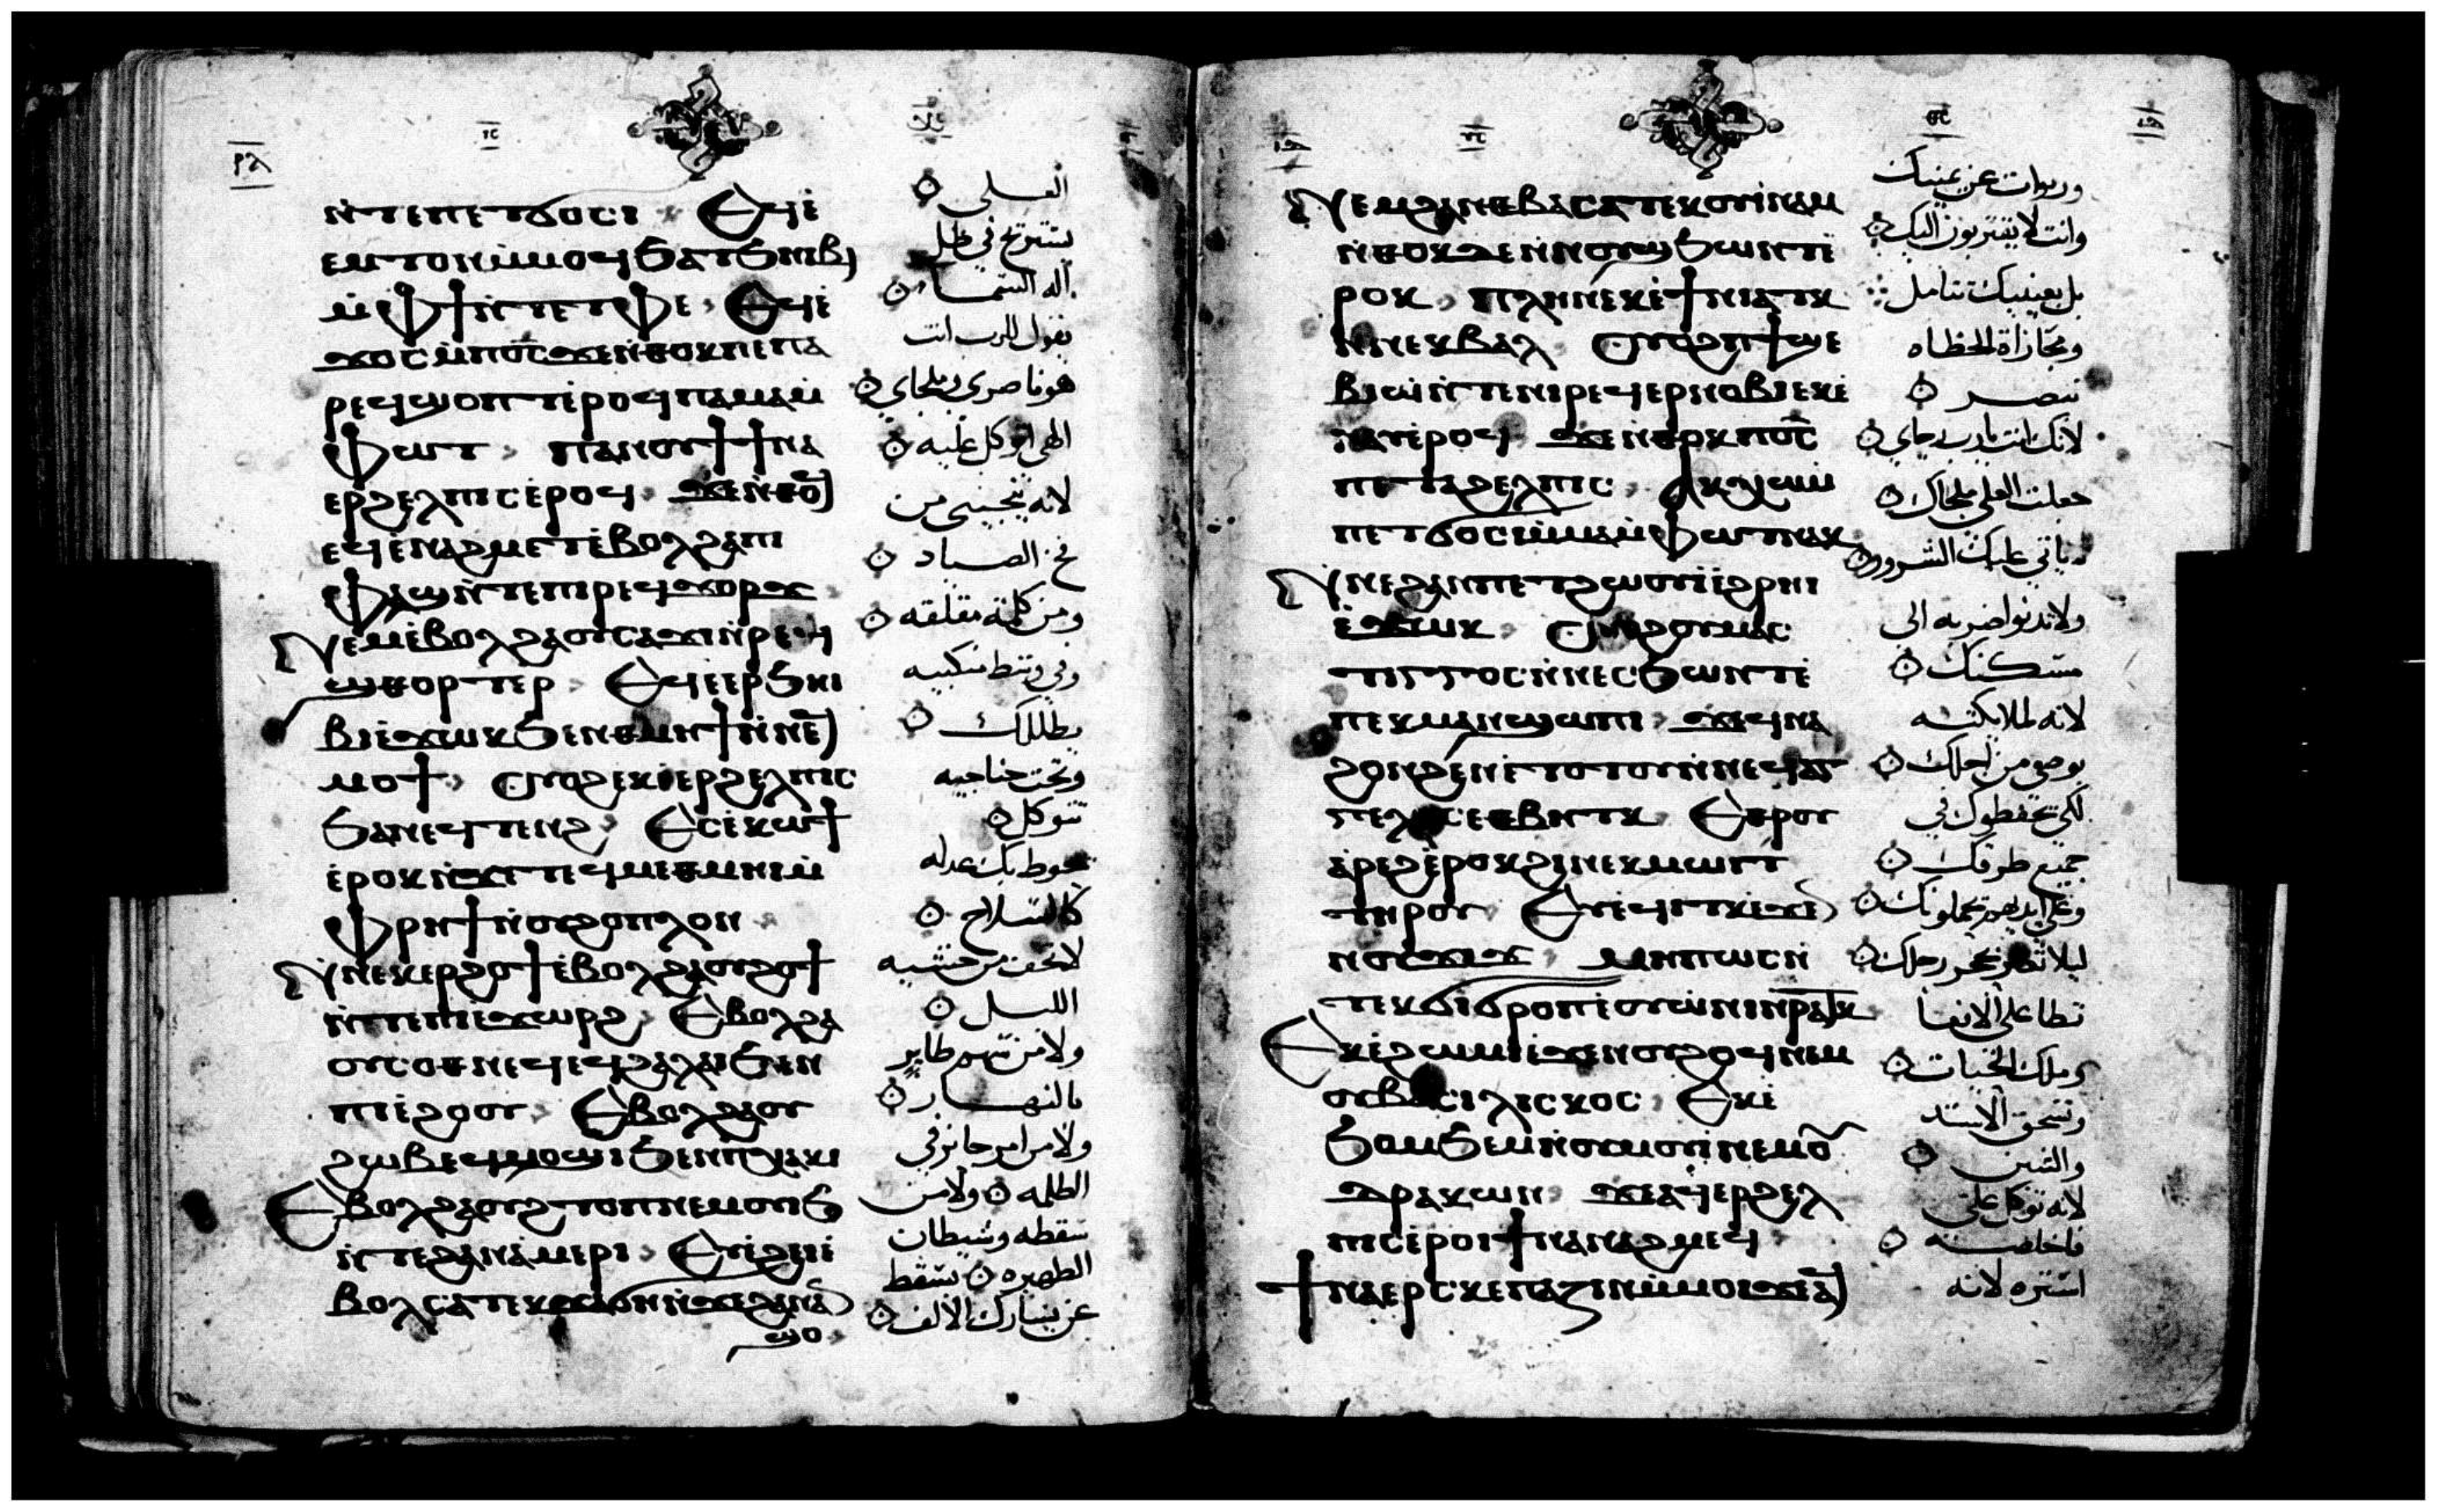 ⲛ̀ⲧⲉⲡⲉⲧϭⲟⲥⲓ Ⲉϥⲉ̀
ⲉⲙⲧⲟⲛⲙ̀ⲙⲟϥϧⲁⲧϧⲏⲓⲃⲓ
ⲙ̀ⲫϯⲛ̀ⲧⲉⲧⲫⲉ Ⲉϥⲉ̀
ϫⲟⲥⲙ̀ⲡⲟ̅ⲥ̅ϫⲉⲛ̀ⲑⲟⲕⲡⲉⲡⲁ
ⲣⲉϥϣⲟⲡⲧⲉ̀ⲣⲟϥⲡⲁⲙⲁⲙ̀
ⲫⲱⲧ ⲡⲁⲛⲟⲩϯϯⲛⲁ
ⲉⲣϩⲉⲗⲡⲓⲥⲉ̀ⲣⲟϥ ϫⲉⲛ̀ⲑⲟ
ⲉϥⲉ̀ⲛⲁϩⲙⲉⲧⲉ̀ⲃⲟⲗϩⲁⲡⲓ
ⲫⲁϣⲛ̀ⲧⲉⲡⲓⲣⲉϥϫⲟⲣϫⲥ
Ⲛⲉⲙⲉ̀ⲃⲟⲗϩⲁⲟⲩⲥⲁϫⲓⲛ̀ⲣⲉϥ
ϣⲑⲟⲣⲧⲉⲣ Ⲉϥⲉⲉⲣϧⲏⲓ
ⲃⲓⲉ̀ϫⲱⲕϧⲉⲛⲑⲙⲏϯⲛ̀ⲛⲉ
ⲙⲟϯ Ⲟⲩⲟϩⲉⲕⲉ̀ⲉⲣϩⲉⲗⲡⲓⲥ
ϧⲁⲛⲉϥⲧⲉⲛϩ Ⲉⲥⲉ̀ⲕⲱϯ
ⲉ̀ⲣⲟⲕⲛ̀ϫⲉⲧⲉϥⲙⲉⲑⲙⲏⲓⲙ̀
ⲫⲣⲏϯⲛ̀ⲟⲩϩⲟⲡⲗⲟⲛ
Ⲛ̀ⲛⲉⲕⲉⲣϩⲟϯⲉ̀ⲃⲟⲗϩⲁⲟⲩϩⲟϯ
ⲛ̀ⲧⲉⲡⲓⲉϫⲱⲣϩ Ⲉⲃⲟⲗϩⲁ
ⲟⲩⲥⲟⲑⲛⲉϥⲉϥϩⲁⲗⲁⲓϧⲉⲛ
ⲡⲓⲉ̀ϩⲟⲟⲩ Ⲉⲃⲟⲗϩⲁⲟⲩ
ϩⲱⲃⲉϥⲙⲟϣⲓϧⲉⲛⲡⲭⲁⲕⲓ
Ⲉⲃⲟⲗϩⲁⲟⲩϩⲧⲟⲡⲛⲉⲙⲟⲩⲓϧ
ⲛ̀ⲧⲉϩⲁⲛⲁ̀ⲙⲉⲣⲓ Ⲉⲩⲉ̀ϩⲉⲓⲉ̀
ⲃⲟⲗⲥⲁⲧⲉⲕϫⲁϭⲏⲛ̀ϫⲉϩⲁⲛⲁ
ϣⲟ
العلى
يستريح في ظل
اله السماء
يقول للرب انت
هو ناصري وملجاي
الهى اتوكل عليه
لانه ينجينى من
فخ الصياد
ومن كلمة مقلقه
وفي وسط منكبيه
يظللك
وتحت جناحيه
تتوكل
تحوط بك عدله
كالسلاح
لا تخف من خشيه
الليل
ولا من سهم طاير
بالنهار
ولا من امر جايز في
الظلمه ولا من
سقطه وشيطان
الظهيره يسقط
عن يسارك الالف
Ⲛⲉⲙϩⲁⲛⲑⲃⲁⲥⲁⲧⲉⲕⲟⲩⲓ̀ⲛⲁⲙ
ⲛ̀ⲑⲟⲕⲇⲉⲛ̀ⲛⲟⲩϣϧⲱⲛⲧⲉ̀
ⲣⲟⲕ ⲡⲗⲏⲛⲉⲕⲉ̀ϯⲛⲓⲁⲧⲕ
ⲛ̀ⲛⲉⲕⲃⲁⲗ Ⲟⲩⲟϩⲧϣⲉ
ⲃⲓⲱ̀ⲛ̀ⲧⲉⲛⲓⲣⲉϥⲉⲣⲛⲟⲃⲓⲉⲕⲉ̀
ⲛⲁⲩⲉ̀ⲣⲟϥ ϫⲉⲛ̀ⲑⲟⲕⲡⲟ̅ⲥ̅
ⲡⲉⲧⲁϩⲉⲗⲡⲓⲥ Ⲁⲕⲭⲱⲙ̀
ⲡⲉⲧϭⲟⲥⲓⲙ̀ⲙⲁⲙ̀ⲫⲱⲧⲛⲁⲕ
Ⲛ̀ⲛⲉϩⲁⲛⲡⲉⲧϩⲱⲟⲩⲓ̀ⲉ̀ϩⲣⲏⲓ
ⲉ̀ϫⲱⲕ Ⲟⲩⲟϩⲟⲩⲙⲁⲥ
ⲧⲓⲅⲅⲟⲥⲛ̀ⲛⲉⲥϧⲱⲛⲧⲉ̀
ⲡⲉⲕⲙⲁⲛ̀ϣⲱⲡⲓ ϫⲉϥⲛⲁ
ϩⲟⲛϩⲉⲛⲉ̀ⲧⲟⲧⲟⲩⲛ̀ⲛⲉϥⲁⲅ
ⲅⲉⲗⲟⲥⲉⲑⲃⲏⲧⲕ Ⲉⲑⲣⲟⲩ
ⲁ̀ⲣⲉϩⲉ̀ⲣⲟⲕϩⲓⲛⲉⲕⲙⲱⲓⲧ
ⲧⲏⲣⲟⲩ Ⲉⲩⲉ̀ϥⲓⲧⲕⲉ̀ϫⲉ
ⲛⲟⲩϫⲓϫ ⲙⲏⲡⲱⲥⲛ̀
ⲧⲉⲕϭⲓϭⲣⲟⲡⲉ̀ⲟⲩⲱ̀ⲛⲓⲛ̀ⲣⲁⲧⲕ
Ⲉⲕⲉ̀ϩⲱⲙⲓⲉ̀ϫⲉⲛⲟⲩϩⲟϥⲛⲉⲙ
ⲟⲩⲃⲁⲥⲓⲗⲓⲥⲕⲟⲥ Ⲉⲕⲉ̀
ϧⲟⲙϧⲉⲙⲛ̀ⲟⲩⲙⲟⲩⲓ̀ⲛⲉⲙⲟ
ⲇⲣⲁⲕⲱⲛ ϫⲉⲁϥⲉⲣϩⲉⲗ
ⲡⲓⲥⲉ̀ⲣⲟⲓϯⲛⲁⲛⲁϩⲙⲉϥ
ϯⲛⲁⲉⲣⲥⲕⲉⲡⲁⲍⲓⲛⲙ̀ⲙⲟϥϫⲉⲁ
وربوات عن يمينك
وانت لا يقتربون اليك
بل بعينيك تتامل
ومجازاة الخطاه
تبصر
لانك انت يا رب رجاي
جعلت العلى ملجاك
لا ياتي عليك الشرور
ولا تدنوا ضربه الى
مسكنك
لانه لملايكته
يوصي من اجلك
لكي يحفظوك في
جميع طرقك
وعلى ايديهم يحملونك
ليلا تعثر بحجر رجلك
تطا على الافعا
وملك الحيات
وتسحق الاسد
والتنين
لانه توكل على
فاخلصه
استره لانه